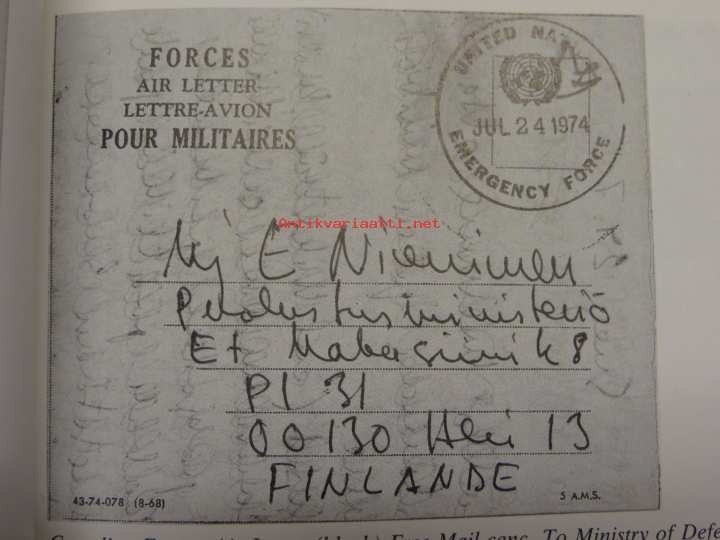 FORCES
AIR LETTER
LETTRE-AVION
POUR MILITAIRES
UNITED NAT
JUL 24 1974
EMERGENCY FORCE
Antikvariaatti.net
Mj E Nieminen
Puolustusministeriö
Et Makasiinik 8
Pl 31
00130 Hki 13
FINLANDE
43-74-078 (8-68)
5 A.M.S.
Free Mail canc. To Ministry of Defe